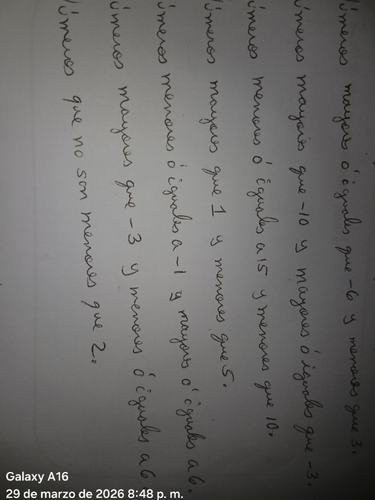 úmeros mayores ó iguales que -6 y menores que 3.
úmeros mayores que -10 y mayores ó iguales que -3.
úmeros menores ó iguales a 15 y menores que 10.
úmeros mayores que 1 y menores que 5.
úmeros menores ó iguales a -1 y mayores ó iguales a 6.
úmeros mayores que -3 y menores ó iguales a 6
úmeros que no son menores que 2.
Galaxy A16
29 de marzo de 2026 8:48 p. m.